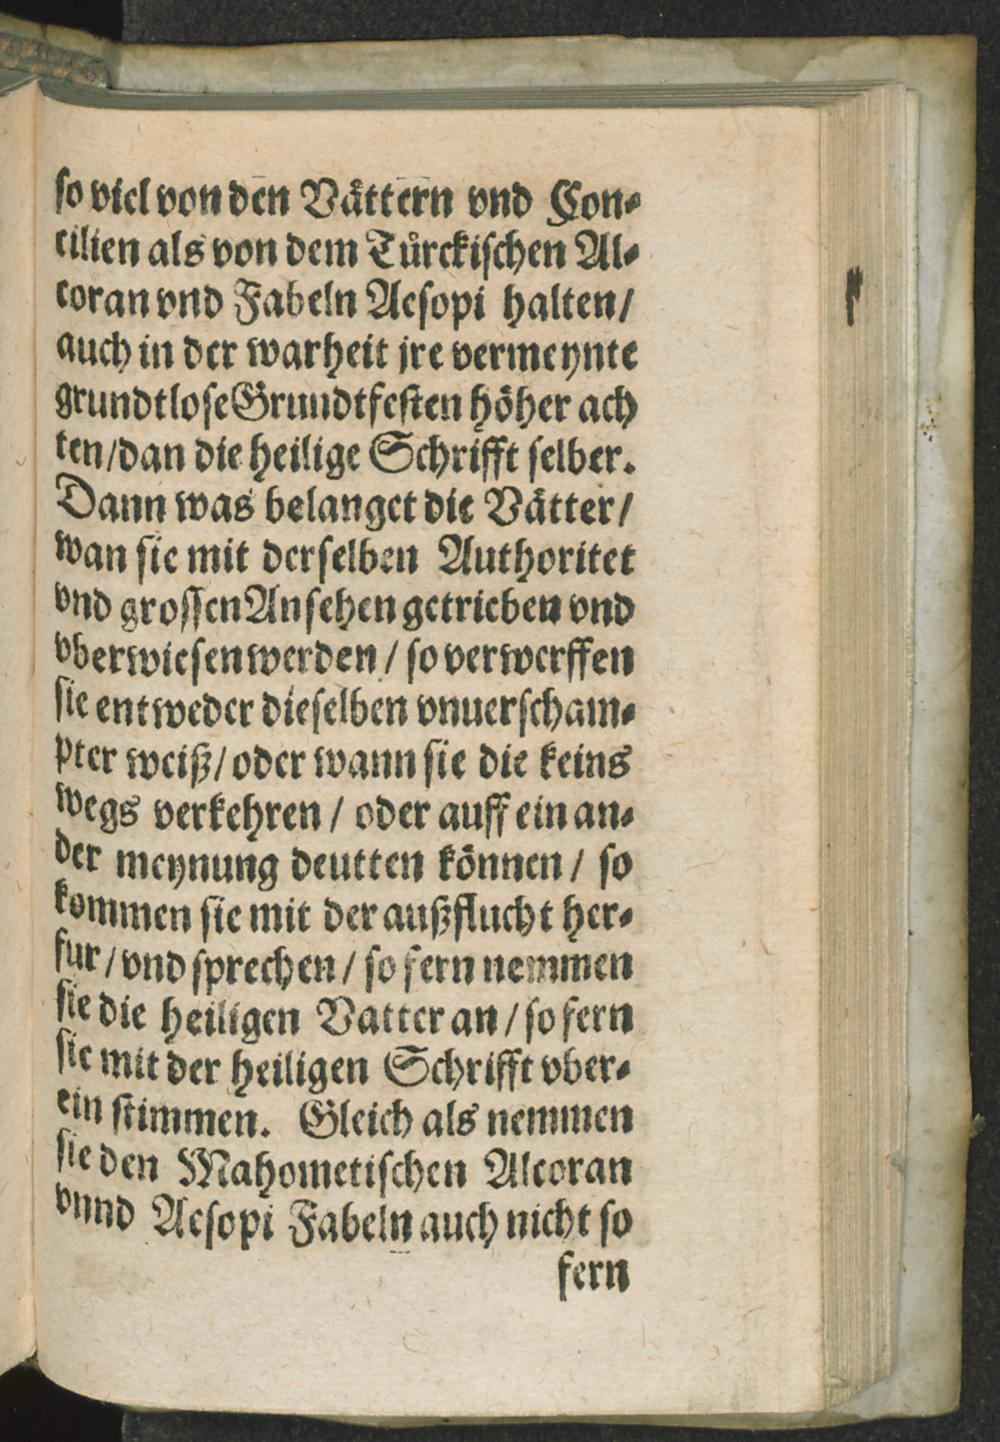 so viel von den Vättern vnd Con⸗
cilien als von dem Tuͤrckischen Al⸗
coran vnd Fabeln Aesopi halten/
auch in der warheit jre vermeynte
grundtlose Grundtfesten höher ach
ten/dan die heilige Schrifft selber.
Dann was belanget die Vätter/
wan sie mit derselben Authoritet
vnd grossen Ansehen getrieben vnd
vberwiesen werden/ so verwerffen
sie entweder dieselben vnuerscham⸗
pter weiß/ oder wann sie die keins
wegs verkehren/ oder auff ein an⸗
der meynung deutten können/ so
kommen sie mit der außflucht her⸗
fur/ vnd sprechen/ so fern nemmen
sie die heiligen Vatter an/ so fern
sie mit der heiligen Schrifft vber⸗
ein stimmen. Gleich als nemmen
sie den Mahometischen Alcoran
vnnd Aesopi Fabeln auch nicht so
fern